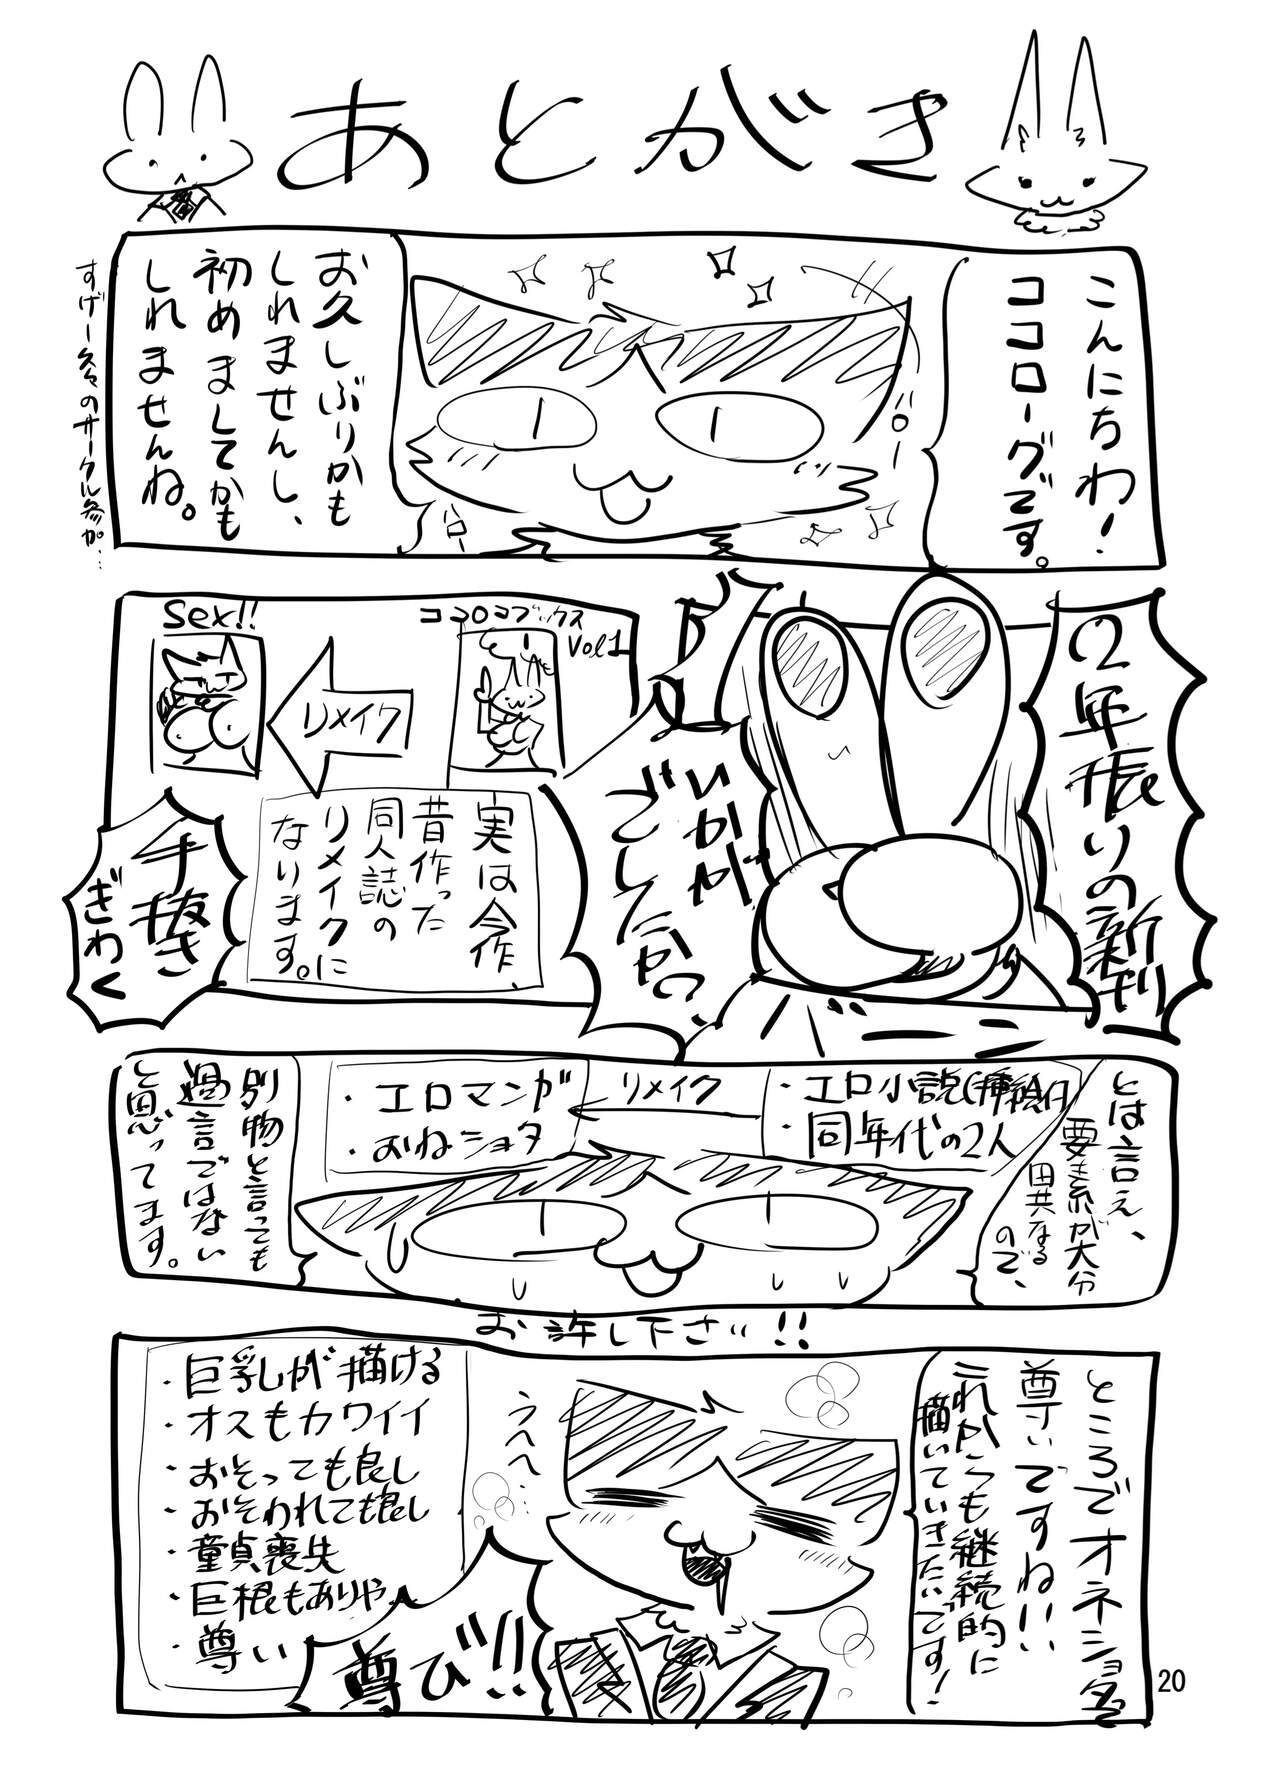 あとがき
こんにちわ！
ココローグです。
ハロー
お久しぶりかも
しれませんし、
初めましてかも
しれませんね。
すげー久々のサークル参加…
2年振りの新刊
いかが
でしたか？
ココロヨブックス
Vol1
リメイク
Sex!!
実は今作、
昔作った
同人誌の
リメイクに
なります。
手抜き
ぎわく
とは言え、
要素が大分
異なる
ので、
・エロ小説(挿絵付)
・同年代の2人
リメイク
・エロマンガ
・おねショタ
別物と言っても
過言ではない
と思ってます。
お許し下さい!!
ところでオネショタ
尊いですねぃぃ
これからも継続的に
描いていきたいです！
うへへへ…
・巨乳しか描ける
・オスもカワイイ
・おそっても良し
・おそわれても良し
・童貞喪失
・巨根もありや
・尊い
尊び!!
20